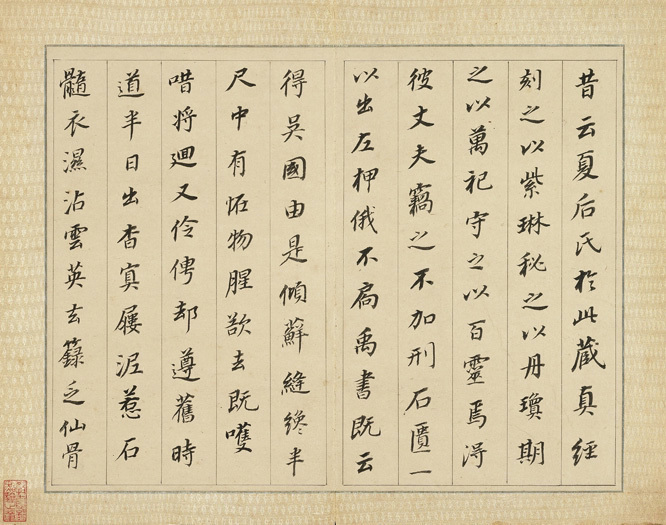 昔云夏后氏於此藏真經
刻之以紫琳秘之以丹瓊期
之以萬祀守之以百靈焉淂
彼丈夫竊之不加刑石匱一
以出左神俄不扃禹書既云
得吳國由是傾蘚縫纔半
尺中有恠物腥欲去既嚄
唶將迴又伶俜却遵舊時
道半日出杳冥屨泥惹石
髓衣濕沾雲英玄籙乏仙骨